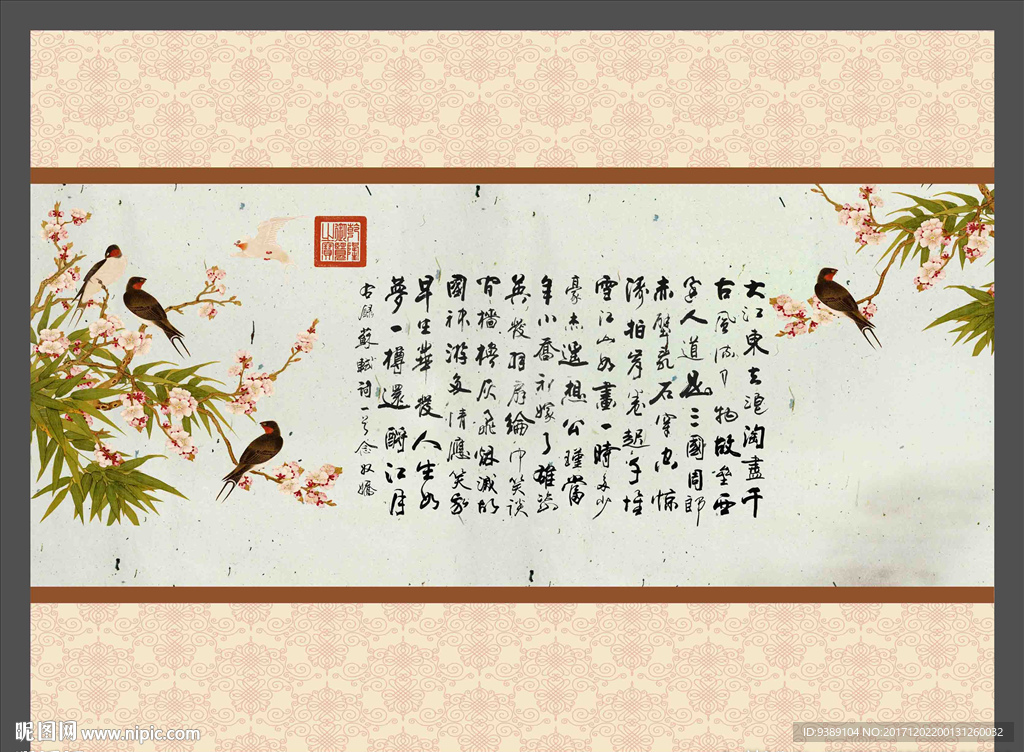 大江東去浪淘盡千
古風流人物故壘西
邊人道是三國周郎
赤壁亂石穿空惊
濤拍岸卷起千堆
雪江山如畫一時多少
豪杰遥想公瑾當
年小喬初嫁了雄姿
英發羽扇綸巾笑談
間檣櫓灰飛烟滅故
國神游多情應笑我
早生華發人生如
夢一樽還酹江月
蘇軾詩一首念奴嬌
乾隆御覽之寶
昵图网 www.nipic.com
ID:9389104 NO:20171202200131260032